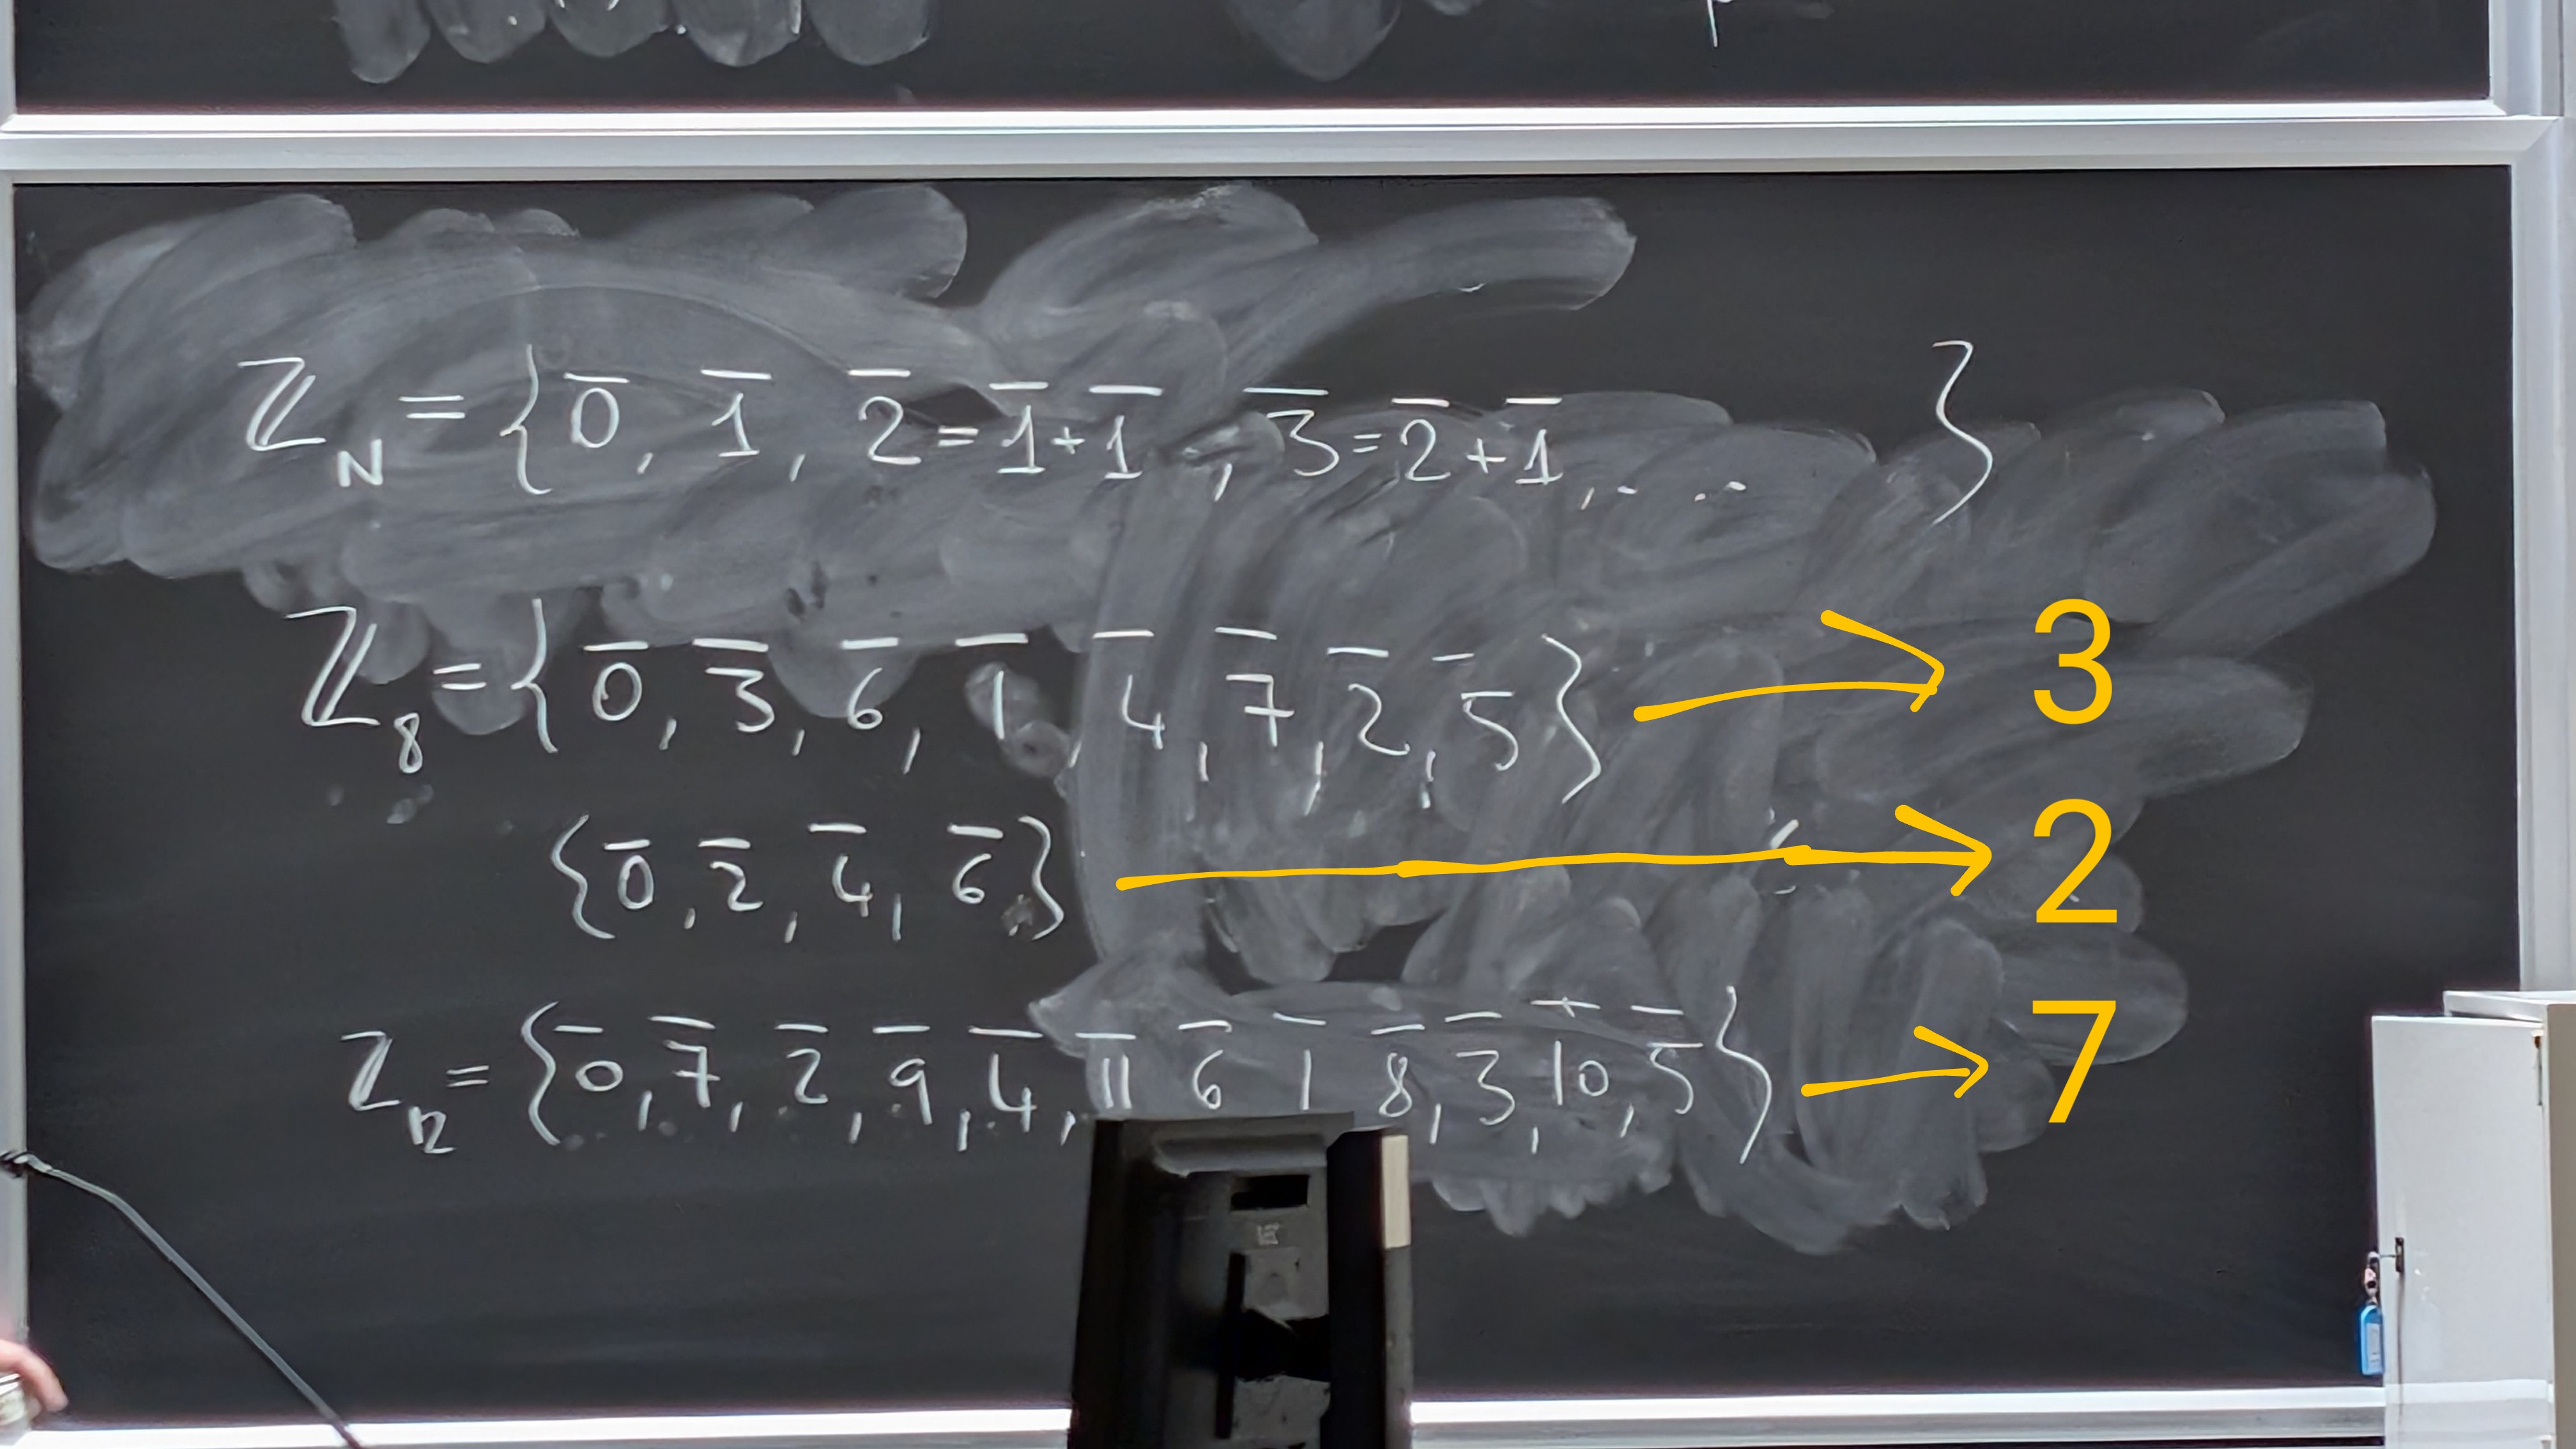 ℤ_N = { 0̅, 1̅, 2̅ = 1̅ + 1̅, 3̅ = 2̅ + 1̅, . . . }
ℤ_8 = { 0̅, 3̅, 6̅, 1̅, 4̅, 7̅, 2̅, 5̅ } → 3
{ 0̅, 2̅, 4̅, 6̅ } → 2
ℤ_12 = { 0̅, 7̅, 2̅, 9̅, 4̅, 1̅1̅ 6̅ 1̅ 8̅, 3̅, 1̅0̅, 5̅ } → 7